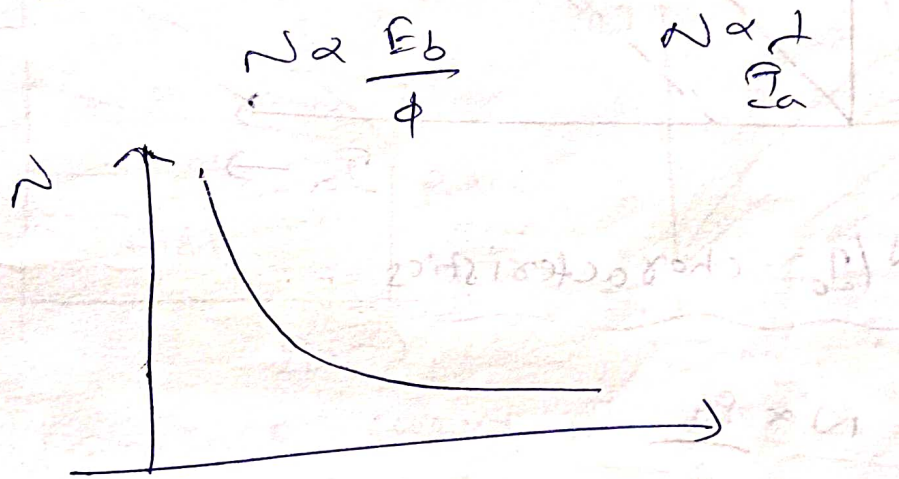 N ∝ Eb/ϕ    N ∝ 1/Ia
N